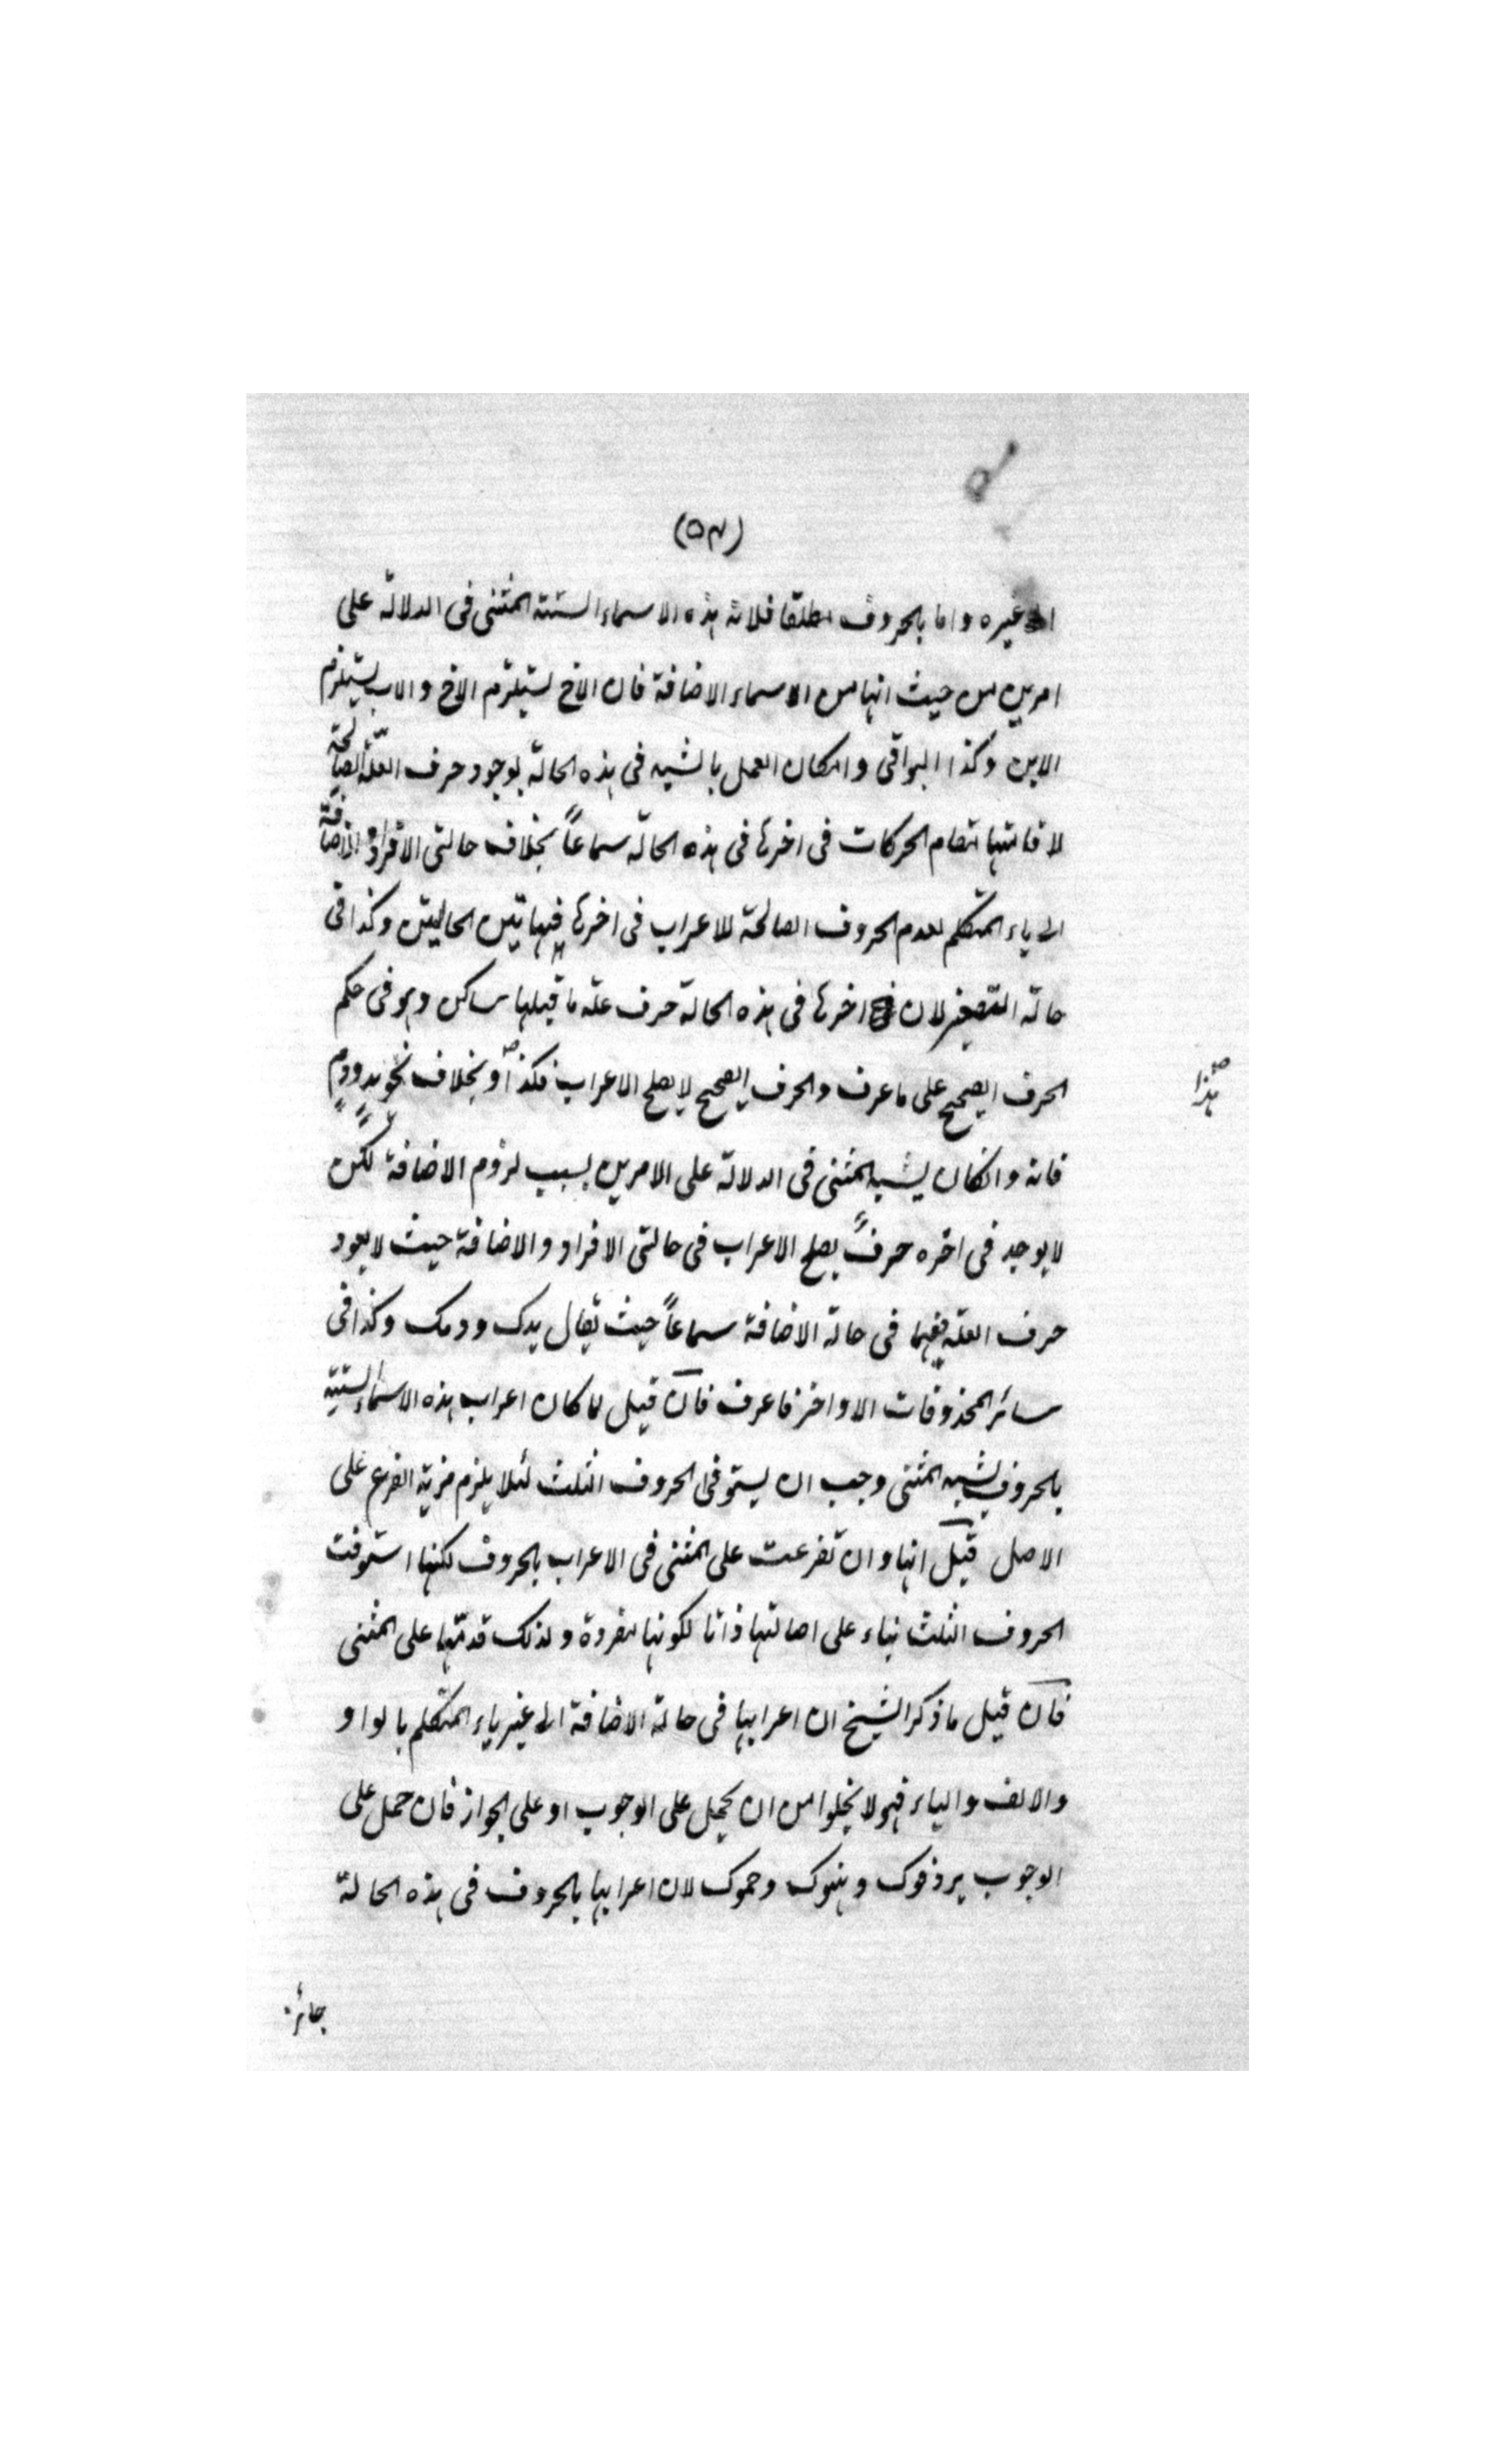 (٥٤)
الى غيره واما بالحروف مطلقا فلانه هذه الاسماء الستة المثنى فى الدلالة على
امرين من حيث انها من الاسماء الاضافة فان الاخ يستلزم الاخ والاب يستلزم
الابن وكذا البواقى وامكان العمل بالشبه فى هذه الحالة بوجود حرف العلة الصالحة
لاقامتها مقام الحركات فى اخرها فى هذه الحالة سماعاً بخلاف حالتى الافراد والاضافة
الى ياء المتكلم لعدم الحروف الصالحة للاعراب فى اخرها فى هاتين الحالتين وكذا فى
حالة التصغير لان اخرها فى هذه الحالة حرف علة ما قبلها ساكن وهو فى حكم
الحرف الصحيح على ما عرف والحرف الصحيح لا يصلح الاعراب فكذا وبخلاف نحو يد ودم
هذا
فانه وانكان يشبه المثنى فى الدلالة على الامرين بسبب لزوم الاضافة لكن
لا يوجد فى اخره حرف يصلح الاعراب فى حالتى الافراد والاضافة حيث لا يعود
حرف العلة فيهما فى حالة الاضافة سماعاً حيث يقال يدك ودمك وكذا فى
سائر المحذوفات الاواخر فاعرف فان قيل لما كان اعراب هذه الاسماء الستة
بالحروف لشبه المثنى وجب ان يستوفى الحروف الثلث لئلا يلزم مزية الفرع على
الاصل قيل انها وان تفرعت على المثنى فى الاعراب بالحروف لكنها استوفت
الحروف الثلث بناء على اصالتها ذاتا لكونها مفردة ولذلك قدمتها على المثنى
فان قيل ما ذكر الشيخ ان اعرابها فى حالة الاضافة الى غير ياء المتكلم بالواو
والالف والياء فهو لا يخلوا من ان يحمل على الوجوب او على الجواز فان حمل على
الوجوب يرد فوك وهنوك وحموك لان اعرابها بالحروف فى هذه الحالة
جائز